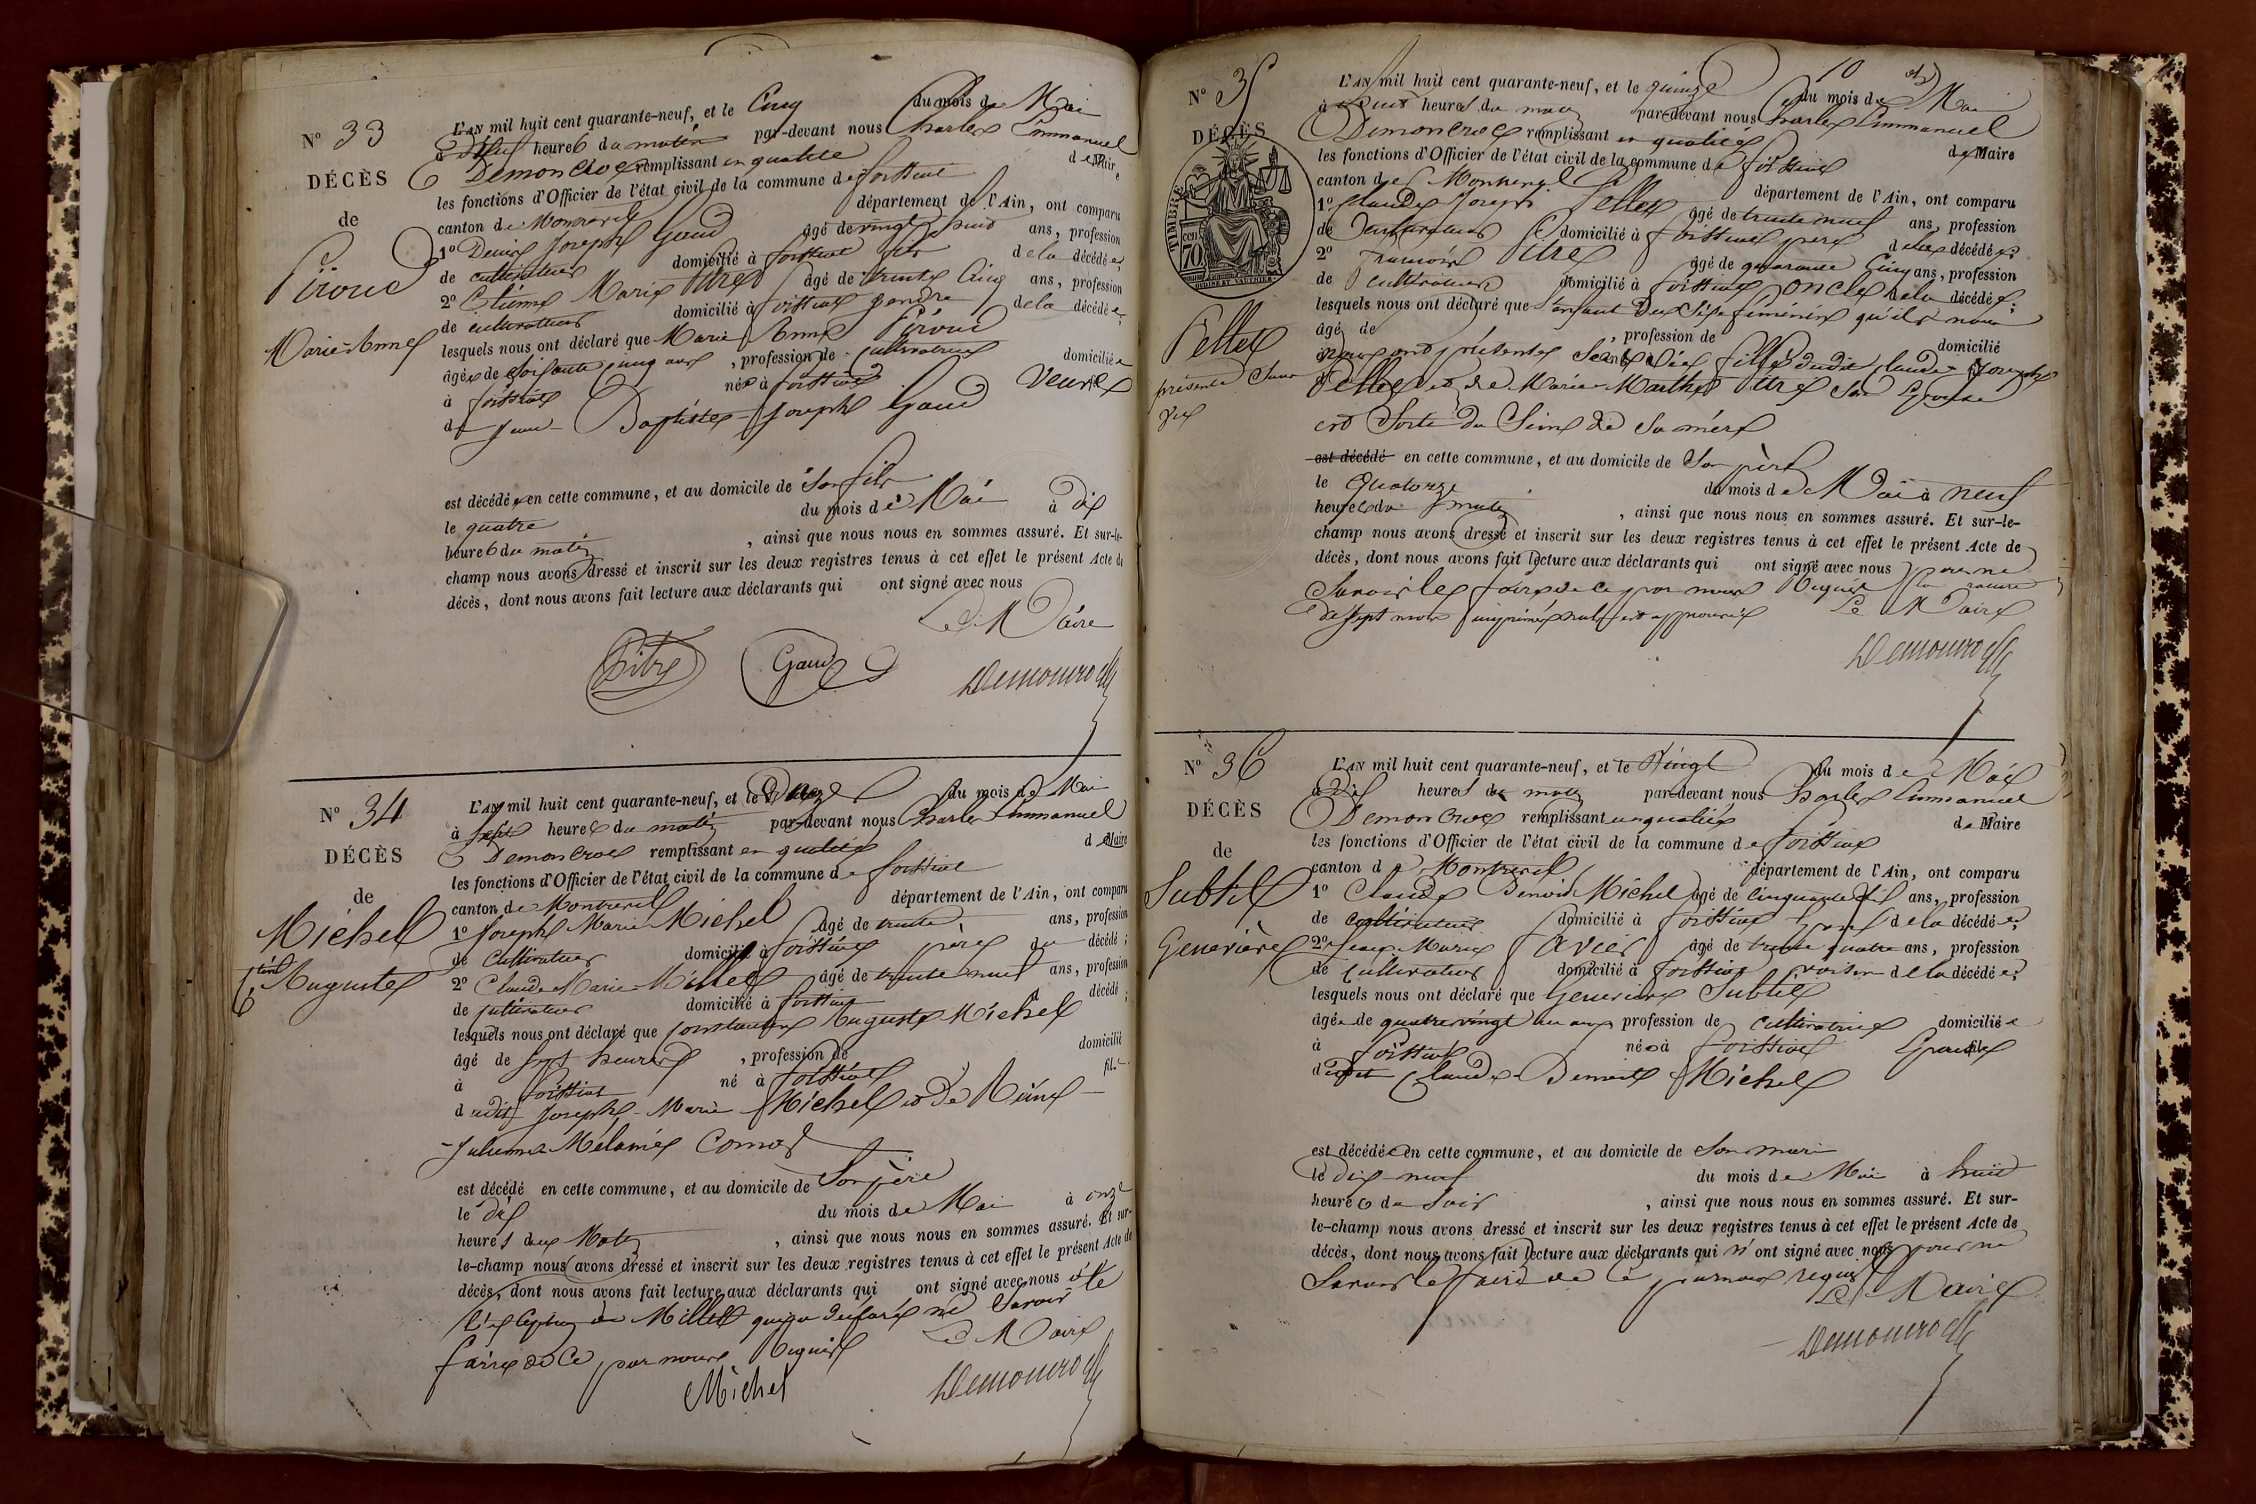 N° 33
DÉCÈS
de
Piroud
Marie-Anne
L'AN mil huit cent quarante-neuf, et le Cinq du mois de Mai
à heures du matin par-devant nous Charles Emmanuel
Demoncroc remplissant en qualité de Maire
les fonctions d'Officier de l'état civil de la commune de
canton de Montrevel département de l'Ain, ont comparu
1° Denis Joseph Gaud âgé de vingt huit ans, profession
de cultivateur domicilié à fils de la décédée;
2° Etienne Marie Pitre âgé de trente Cinq ans, profession
de cultivateur domicilié à gendre de la décédée;
lesquels nous ont déclaré que Marie Anne Piroud
âgée de Soixante cinq ans, profession de cultivatrice domiciliée
à née à veuve
de Jean-Baptiste-Joseph Gaud
est décédée en cette commune, et au domicile de Son fils
le quatre du mois de Mai à dix
heures du matin, ainsi que nous nous en sommes assuré. Et sur-le-
champ nous avons dressé et inscrit sur les deux registres tenus à cet effet le présent Acte de
décès, dont nous avons fait lecture aux déclarants qui ont signé avec nous
Le Maire
Pitre Gaud Demoncroc
N° 34
DÉCÈS
de
Michel
Auguste
L'AN mil huit cent quarante-neuf, et le du mois de Mai
à sept heures du matin par-devant nous Charles Emmanuel
Demoncroc remplissant en qualité de Maire
les fonctions d'Officier de l'état civil de la commune de
canton de Montrevel département de l'Ain, ont comparu
1° Joseph Marie Michel âgé de trente ans, profession
de Cultivateur domicilié à père du décédé;
2° Claude Marie Millet âgé de trente neuf ans, profession
de cultivateur domicilié à décédé;
lesquels nous ont déclaré que Constantin Auguste Michel
âgé de sept heures, profession de domicilié
à né à fils
dudit Joseph-Marie Michel et de Reine-
-Julienne Mélanie
est décédé en cette commune, et au domicile de Son père
le dix du mois de Mai à onze
heures du Matin, ainsi que nous nous en sommes assuré. Et sur-
le-champ nous avons dressé et inscrit sur les deux registres tenus à cet effet le présent Acte de
décès, dont nous avons fait lecture aux déclarants qui ont signé avec nous à
l'exception de Millet qui a déclaré ne Savoir le
faire de ce par nous Requis Le Maire
Michel Demoncroc
10
N° 35
DÉCÈS
TIMBRE
70
Pellet
présenté Sans
vie
L'AN mil huit cent quarante-neuf, et le quinze du mois de Mai
à heures du matin par-devant nous Charles Emmanuel
Demoncroc remplissant en qualité de Maire
les fonctions d'Officier de l'état civil de la commune de
canton de Montrevel département de l'Ain, ont comparu
1° Claude Joseph Pellet âgé de trente neuf ans, profession
de Cultivateur domicilié à père de la décédée;
2° François Pitre âgé de quarante Cinq ans, profession
de Cultivateur domicilié à oncle de la décédée;
lesquels nous ont déclaré que l'enfant du Sexe féminin qu'ils nous
âgé de profession de domicilié
ont présenté Sans Vie, fille dudit Claude Joseph
Pellet et de Marie Marthe Pitre Son Epouse
est Sorti du Sein de Sa mère
est décédé en cette commune, et au domicile de Son père
le Quatorze du mois de Mai à neuf
heures du matin, ainsi que nous nous en sommes assuré. Et sur-le-
champ nous avons dressé et inscrit sur les deux registres tenus à cet effet le présent Acte de
décès, dont nous avons fait lecture aux déclarants qui ont signé avec nous pour ne
Savoir le faire de ce par nous Requis
de sept mots imprimés nuls est approuvée Le Maire
Demoncroc
N° 36
DÉCÈS
de
Subtil
Geneviève
L'AN mil huit cent quarante-neuf, et le Vingt du mois de Mai
à Dix heures du matin par-devant nous Charles Emmanuel
Demoncroc remplissant en qualité de Maire
les fonctions d'Officier de l'état civil de la commune de
canton de Montrevel département de l'Ain, ont comparu
1° Claude Benoit Michel âgé de Cinquante ans, profession
de Cultivateur domicilié à de la décédée;
2° Jean Marie âgé de trente quatre ans, profession
de Cultivateur domicilié à voisin de la décédée;
lesquels nous ont déclaré que Geneviève Subtil
âgée de quatre vingt un ans profession de cultivatrice domiciliée
à née à Epouse
dudit Claude Benoit Michel
est décédée en cette commune, et au domicile de Son mari
le dix neuf du mois de Mai à huit
heures du Soir, ainsi que nous nous en sommes assuré. Et sur-
le-champ nous avons dressé et inscrit sur les deux registres tenus à cet effet le présent Acte de
décès, dont nous avons fait lecture aux déclarants qui n'ont signé avec nous pour ne
Savoir le faire de ce par nous requis Le Maire
Demoncroc